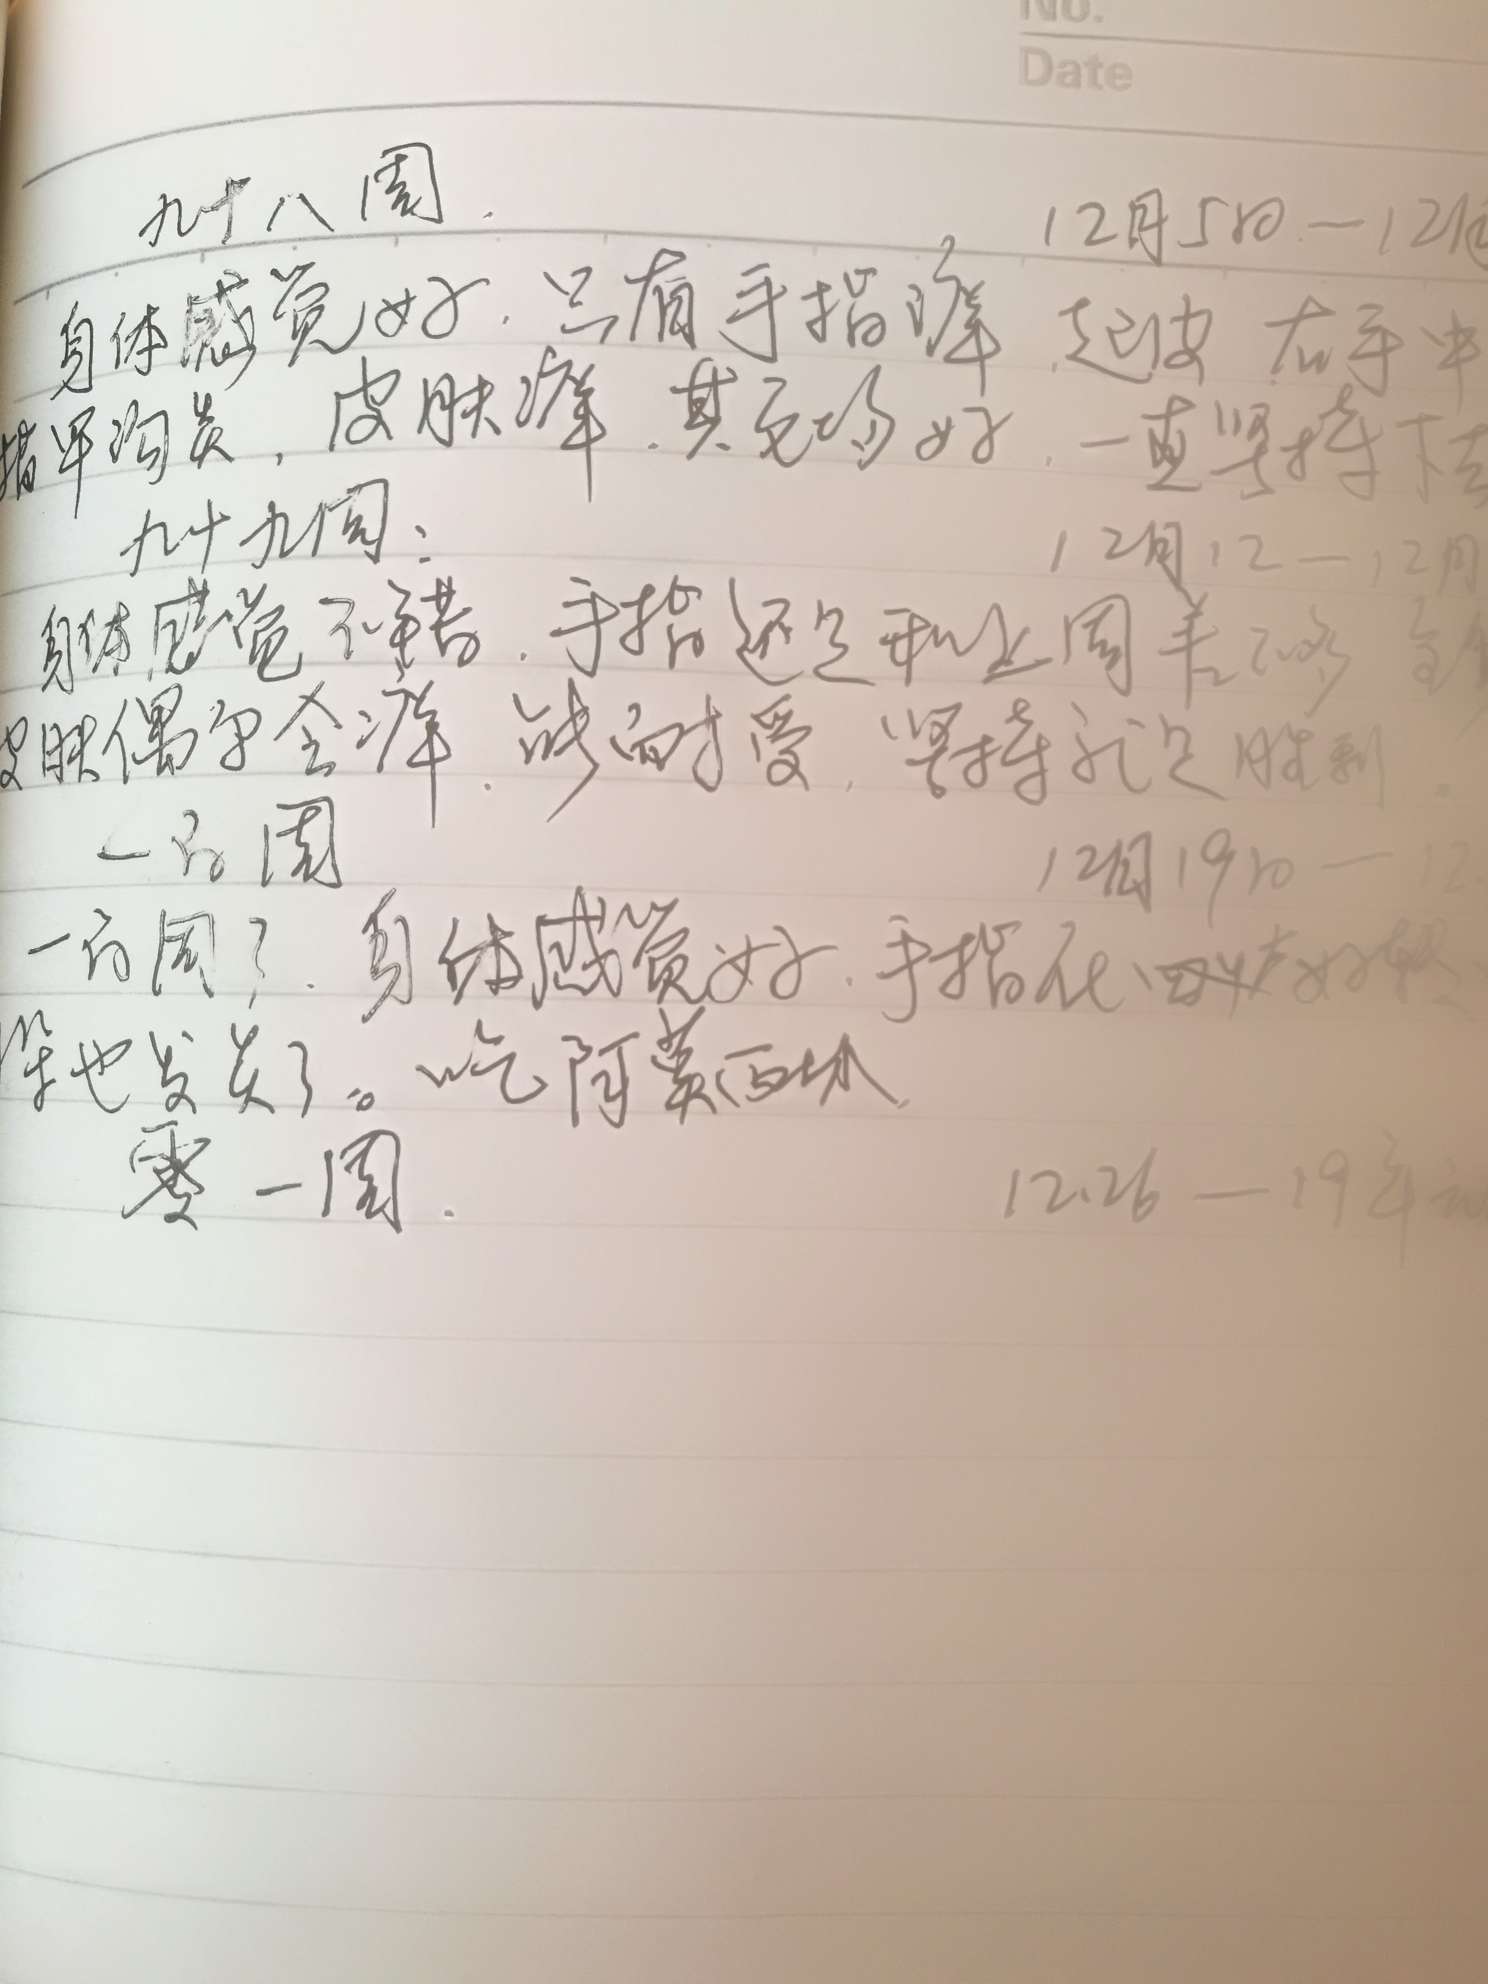 No.
Date
九十八周. 12月5日—12
身体感觉好.只有手指痒.起皮 右手中
指甲沟炎,皮肤痒.其它均好.一直坚持下去
九十九周: 12月12—12月
身体感觉不错.手指还是和上周差不多
皮肤偶尔会痒.能耐受,坚持就是胜利.
一百周 12月19日—12.
一百周了.身体感觉好.手指在
也发炎了。吃阿莫西林.
零一周. 12.26—19年